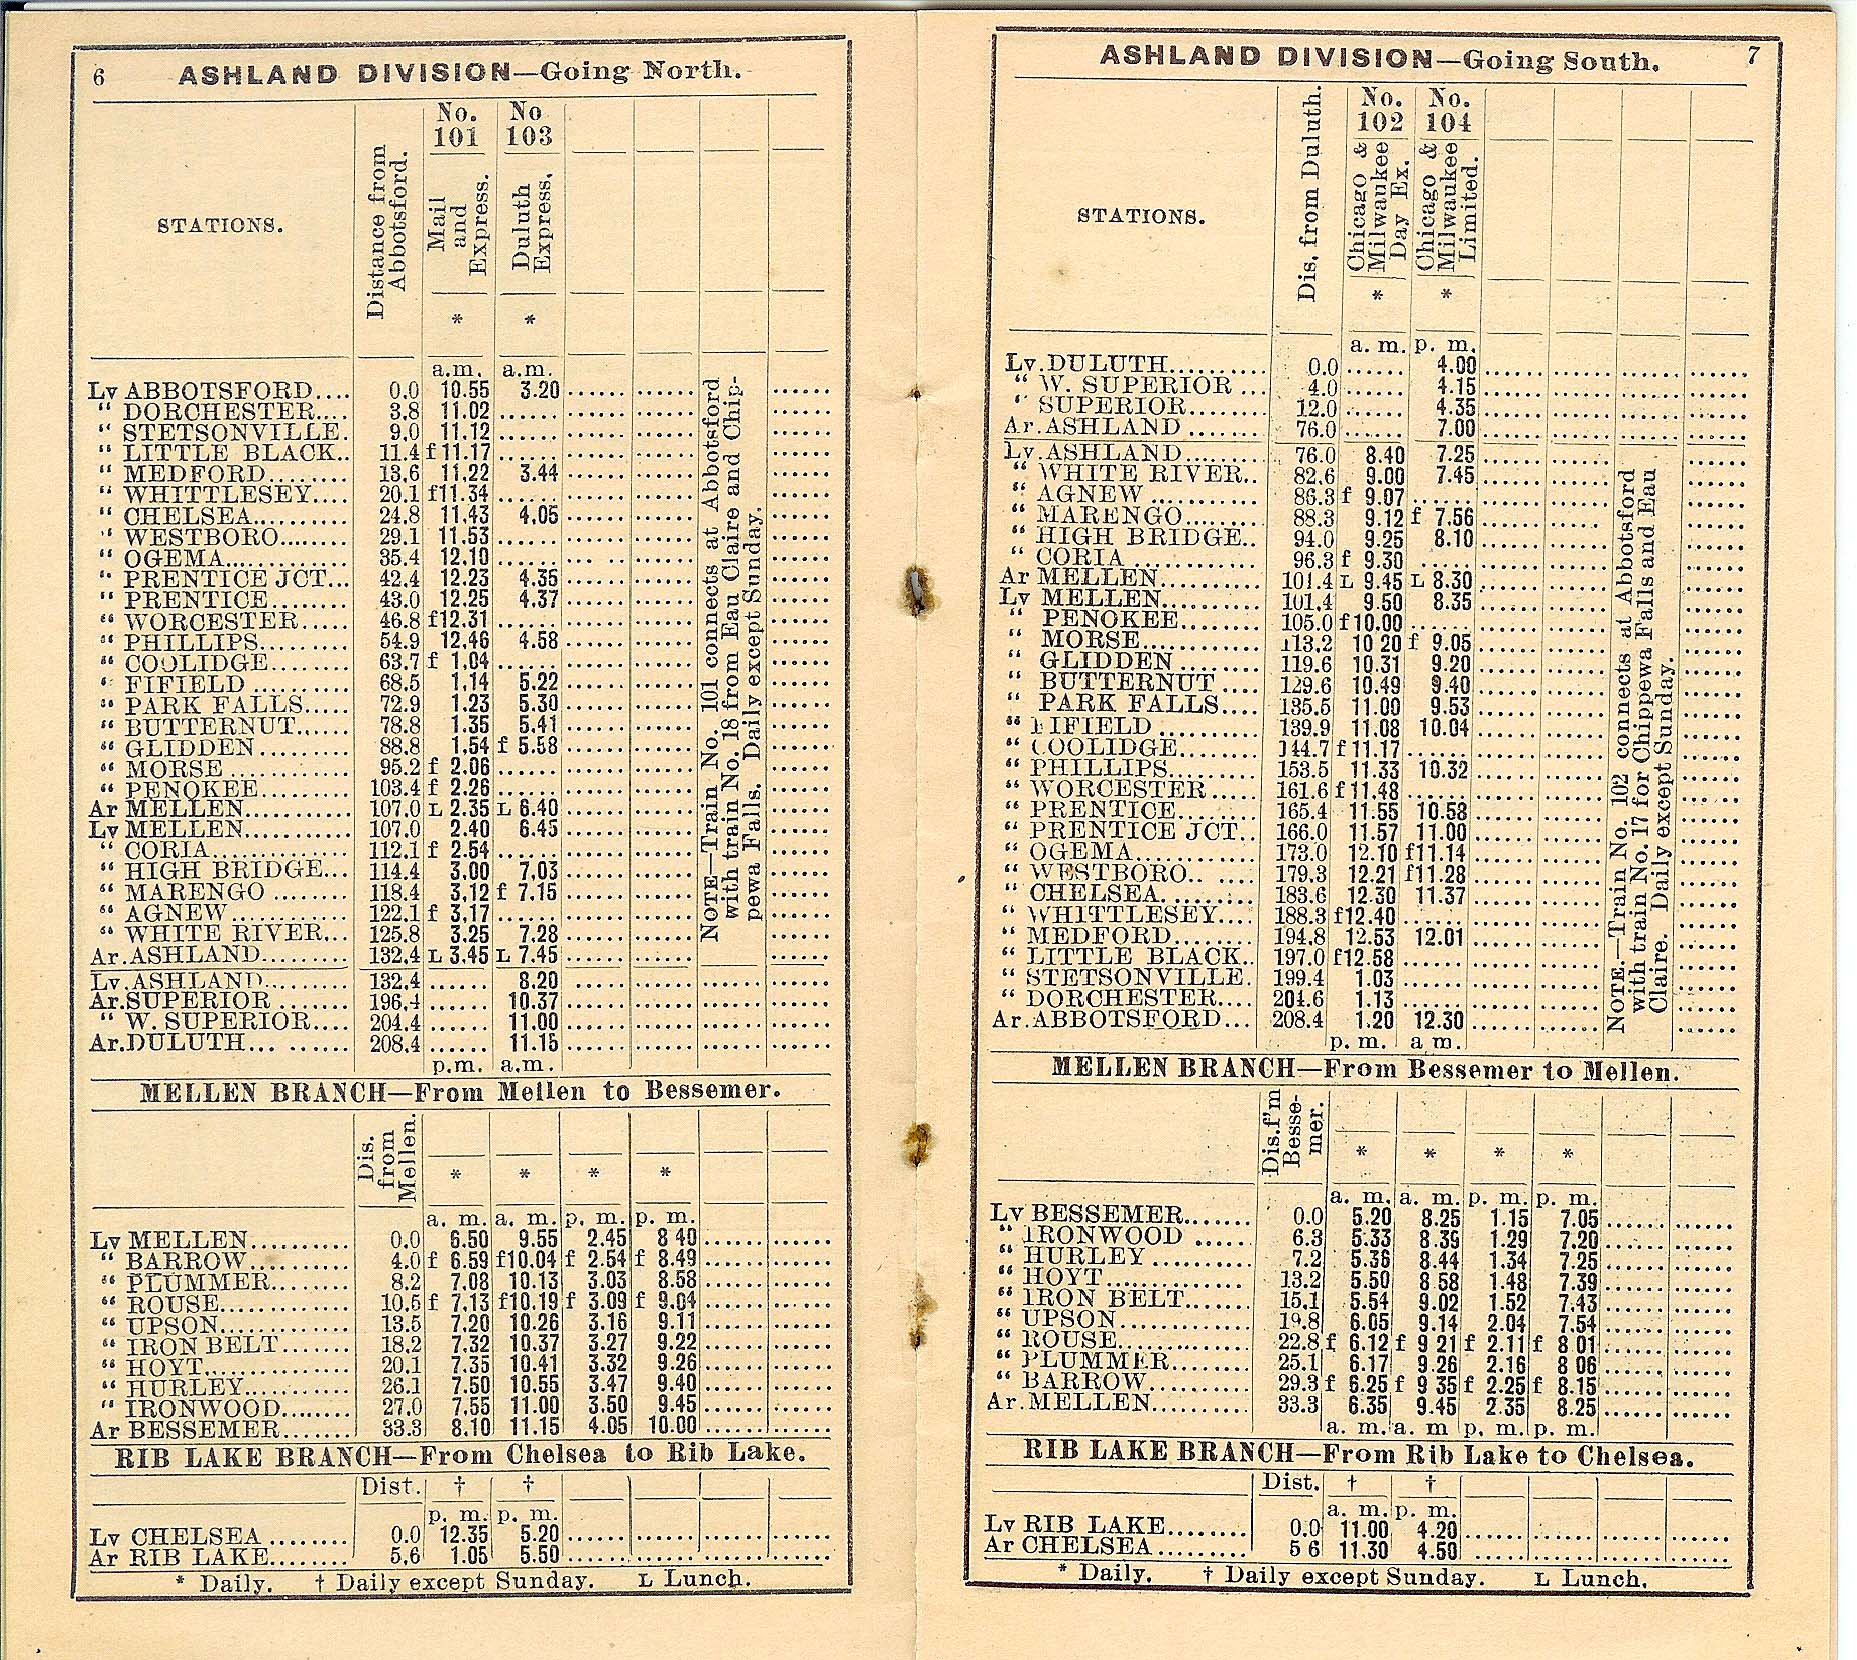 6 ASHLAND DIVISION—Going North.
STATIONS. Distance from Abbotsford. No. 101 Mail and Express. No 103 Duluth Express.
* *
a.m. a.m.
Lv ABBOTSFORD.... 0.0 10.55 3.20
“ DORCHESTER.... 3.8 11.02 ......
“ STETSONVILLE. 9.0 11.12 ......
“ LITTLE BLACK.. 11.4 f 11.17 ......
“ MEDFORD........ 13.6 11.22 3.44
“ WHITTLESEY.... 20.1 f11.34 ......
“ CHELSEA.......... 24.8 11.43 4.05
“ WESTBORO........ 29.1 11.53 ......
“ OGEMA............. 35.4 12.10 ......
“ PRENTICE JCT... 42.4 12.23 4.35
“ PRENTICE......... 43.0 12.25 4.37
“ WORCESTER..... 46.8 f12.31 ......
“ PHILLIPS.......... 54.9 12.46 4.58
“ COOLIDGE......... 63.7 f 1.04 ......
“ FIFIELD .......... 68.5 1.14 5.22
“ PARK FALLS..... 72.9 1.23 5.30
“ BUTTERNUT...... 78.8 1.35 5.41
“ GLIDDEN.......... 88.8 1.54 f 5.58
“ MORSE ............ 95.2 f 2.06 ......
“ PENOKEE......... 103.4 f 2.26 ......
Ar MELLEN........... 107.0 L 2.35 L 6.40
Lv MELLEN........... 107.0 2.40 6.45
“ CORIA.............. 112.1 f 2.54 ......
“ HIGH BRIDGE... 114.4 3.00 7.03
“ MARENGO ........ 118.4 3.12 f 7.15
“ AGNEW............ 122.1 f 3.17 ......
“ WHITE RIVER... 125.8 3.25 7.28
Ar. ASHLAND......... 132.4 L 3.45 L 7.45
Lv. ASHLAND.......... 132.4 ...... 8.20
Ar. SUPERIOR ....... 196.4 ...... 10.37
“ W. SUPERIOR.... 204.4 ...... 11.00
Ar. DULUTH... ...... 208.4 ...... 11.15
p.m. a.m.
NOTE—Train No. 101 connects at Abbotsford
with train No. 18 from Eau Claire and Chip-
pewa Falls. Daily except Sunday.
MELLEN BRANCH—From Mellen to Bessemer.
Dis. from Mellen. * * * *
a. m. a. m. p. m. p. m.
Lv MELLEN.......... 0.0 6.50 9.55 2.45 8 40
“ BARROW.......... 4.0 f 6.59 f10.04 f 2.54 f 8.49
“ PLUMMER........ 8.2 7.08 10.13 3.03 8.58
“ ROUSE............. 10.5 f 7.13 f10.19 f 3.09 f 9.04
“ UPSON............. 13.5 7.20 10.26 3.16 9.11
“ IRON BELT....... 18.2 7.32 10.37 3.27 9.22
“ HOYT.............. 20.1 7.35 10.41 3.32 9.26
“ HURLEY........... 26.1 7.50 10.55 3.47 9.40
“ IRONWOOD....... 27.0 7.55 11.00 3.50 9.45
Ar BESSEMER....... 33.3 8.10 11.15 4.05 10.00
RIB LAKE BRANCH—From Chelsea to Rib Lake.
Dist. † †
p. m. p. m.
Lv CHELSEA ........ 0.0 12.35 5.20
Ar RIB LAKE........ 5.6 1.05 5.50
* Daily. † Daily except Sunday. L Lunch.
ASHLAND DIVISION—Going South. 7
STATIONS. Dis. from Duluth. No. 102 Chicago & Milwaukee Day Ex. No. 104 Chicago & Milwaukee Limited.
* *
a. m. p. m.
Lv. DULUTH.......... 0.0 ...... 4.00
“ W. SUPERIOR ... 4.0 ...... 4.15
“ SUPERIOR........ 12.0 ...... 4.35
Ar. ASHLAND ....... 76.0 ...... 7.00
Lv. ASHLAND........ 76.0 8.40 7.25
“ WHITE RIVER.. 82.6 9.00 7.45
“ AGNEW ........... 86.3 f 9.07 ......
“ MARENGO........ 88.3 9.12 f 7.56
“ HIGH BRIDGE.. 94.0 9.25 8.10
“ CORIA ............ 96.3 f 9.30 ......
Ar MELLEN.......... 101.4 L 9.45 L 8.30
Lv MELLEN.......... 101.4 9.50 8.35
“ PENOKEE........ 105.0 f 10.00 ......
“ MORSE............ 113.2 10 20 f 9.05
“ GLIDDEN ........ 119.6 10.31 9.20
“ BUTTERNUT .... 129.6 10.49 9.40
“ PARK FALLS.... 135.5 11.00 9.53
“ FIFIELD .......... 139.9 11.08 10.04
“ COOLIDGE........ 144.7 f 11.17 ......
“ PHILLIPS......... 153.5 11.33 10.32
“ WORCESTER..... 161.6 f 11.48 ......
“ PRENTICE........ 165.4 11.55 10.58
“ PRENTICE JCT.. 166.0 11.57 11.00
“ OGEMA............ 173.0 12.10 f11.14
“ WESTBORO.. .... 179.3 12.21 f11.28
“ CHELSEA......... 183.6 12.30 11.37
“ WHITTLESEY.... 188.3 f12.40 ......
“ MEDFORD........ 194.8 12.53 12.01
“ LITTLE BLACK.. 197.0 f12.58 ......
“ STETSONVILLE. 199.4 1.03 ......
“ DORCHESTER.... 204.6 1.13 ......
Ar. ABBOTSFORD... 208.4 1.20 12.30
p. m. a m.
NOTE.—Train No. 102 connects at Abbotsford
with train No. 17 for Chippewa Falls and Eau
Claire. Daily except Sunday.
MELLEN BRANCH—From Bessemer to Mellen.
Dis. f'm Bessemer. * * * *
a. m. a. m. p. m. p. m.
Lv BESSEMER....... 0.0 5.20 8.25 1.15 7.05
“ IRONWOOD ...... 6.3 5.33 8.39 1.29 7.20
“ HURLEY .......... 7.2 5.36 8.44 1.34 7.25
“ HOYT.............. 13.2 5.50 8 58 1.48 7.39
“ IRON BELT....... 15.1 5.54 9.02 1.52 7.43
“ UPSON............. 19.8 6.05 9.14 2.04 7.54
“ ROUSE............. 22.8 f 6.12 f 9 21 f 2.11 f 8 01
“ PLUMMER........ 25.1 6.17 9.26 2.16 8 06
“ BARROW.......... 29.3 f 6.25 f 9 35 f 2.25 f 8.15
Ar. MELLEN.......... 33.3 6.35 9.45 2.35 8.25
a. m. a. m p. m. p. m.
RIB LAKE BRANCH—From Rib Lake to Chelsea.
Dist. † †
a. m. p. m.
Lv RIB LAKE........ 0.0 11.00 4.20
Ar CHELSEA......... 5 6 11.30 4.50
* Daily. † Daily except Sunday. L Lunch.